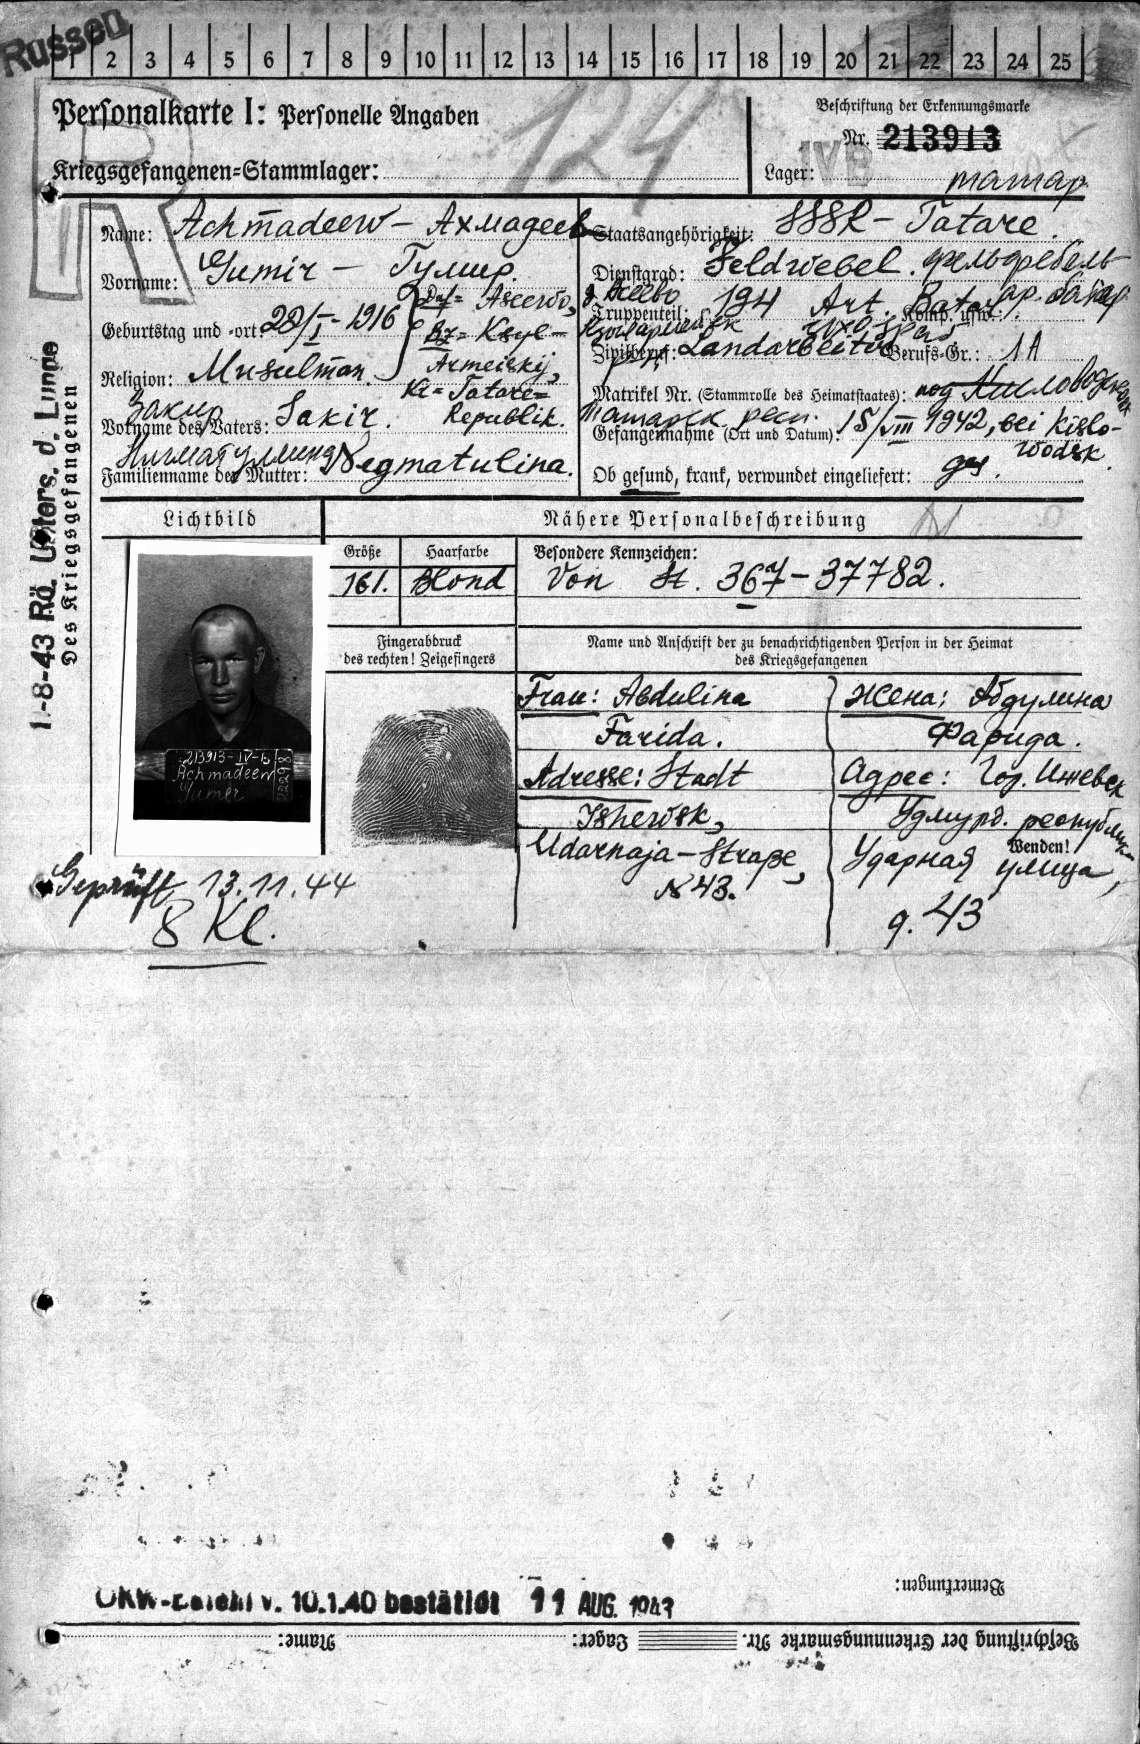 Russen
1 2 3 4 5 6 7 8 9 10 11 12 13 14 15 16 17 18 19 20 21 22 23 24 25
Personalkarte I: Personelle Angaben
Kriegsgefangenen-Stammlager:
124
Beschriftung der Erkennungsmarke
Nr. 213913
Lager: IVB
татар.
R
Name: Achmadeew – Ахмадеев
Vorname: Gumir – Гумир.
Geburtstag und -ort: 28/I – 1916
Dorf= Aseewo,
Bz= Ksyl-
Armeiskij,
Kr= Tatare=
Republik.
Religion: Musulman.
Закир
Vorname des Vaters: Sakir.
Нигматулина
Familienname der Mutter: Negmatulina.
Staatsangehörigkeit: SSSR – Tatare.
Dienstgrad: Feldwebel. фельдфебель
д. Асево
Truppenteil: 194 Art. Batar. ар. батар.
Komp. usw.:
Zivilberuf: Landarbeiter
Berufs-Gr.: 1A
Matrikel Nr. (Stammrolle des Heimatstaates): под Кисловодском
Татарск. респ.
Gefangennahme (Ort und Datum): 15/VIII 1942, bei Kislo-
wodsk.
Ob gesund, krank, verwundet eingeliefert: ges.
Des Kriegsgefangenen
1.-8-43 Rä. Unters. d. Lunge
Lichtbild
213913-IV-B
Achmadeew
Gumir
Nähere Personalbeschreibung
Größe
161.
Haarfarbe
Blond
Besondere Kennzeichen:
Von St. 367-37782.
Fingerabdruck
des rechten! Zeigefingers
Name und Anschrift der zu benachrichtigenden Person in der Heimat
des Kriegsgefangenen
Frau: Abdulina
Farida.
Adresse: Stadt
Ishewsk,
Udarnaja-Straße,
№ 43.
Жена: Абдулина
Фарида.
Адрес: Гор. Ижевск
Удмурд. республик
Ударная улица,
д. 43
Wenden!
Geprüft 13.11.44
8 Kl.
Bemerkungen:
OKW-Befehl v. 10.1.40 bestätigt 11 AUG. 1943
Beschriftung der Erkennungsmarke Nr. Lager: Name: